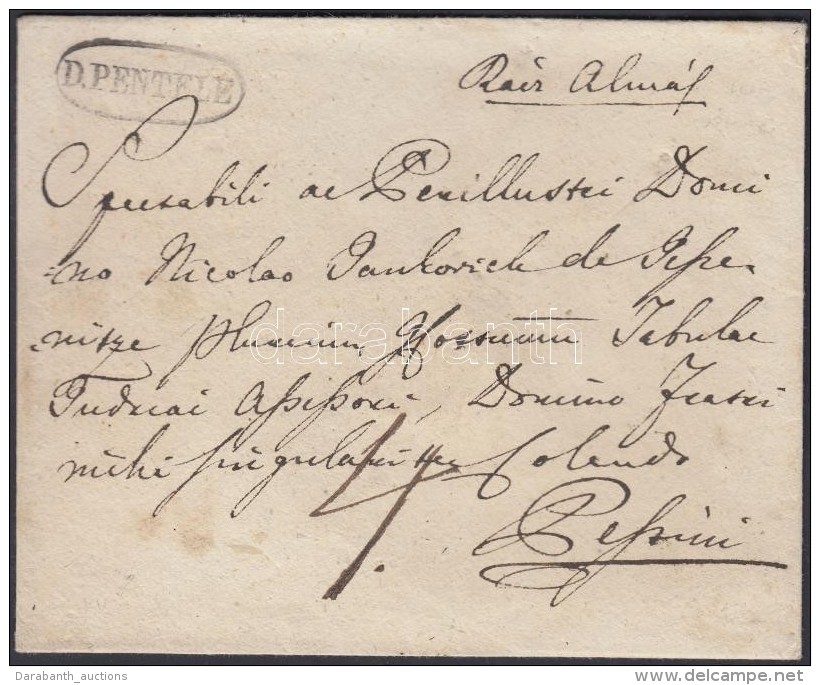 D. PENTELE
Rácz Almás
Spectabili ac Perillustri Domi
=no Nicolao Jankovich de Jesze=
=nitze plurium Cottuum Tabulae
Judriai Assessori, Domino Fratri
mihi singulariter Colendo
Pestini
darabanth
Darabanth_auctions
www.delcampe.net